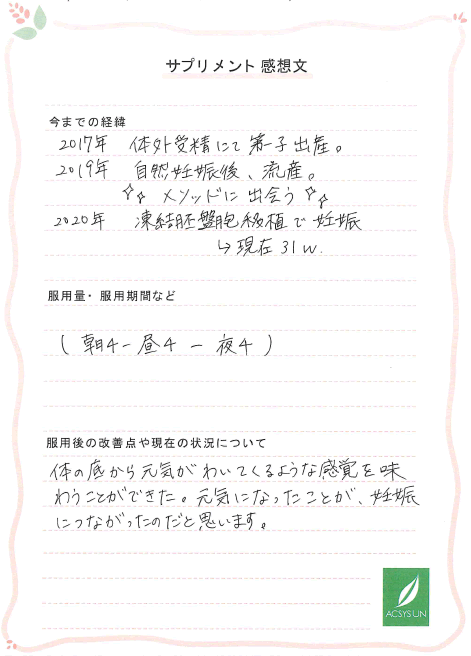 サプリメント 感想文
今までの経緯
2017年 体外受精にて第一子出産。
2019年 自然妊娠後、流産。
☆☆ メソッドに出会う ☆☆
2020年 凍結胚盤胞移植で妊娠
↳現在 31w.
服用量・服用期間など
(朝4-昼4-夜4)
服用後の改善点や現在の状況について
体の底から元気がわいてくるような感覚を味
わうことができた。元気になったことが、妊娠
につながったのだと思います。
ACSYSUN